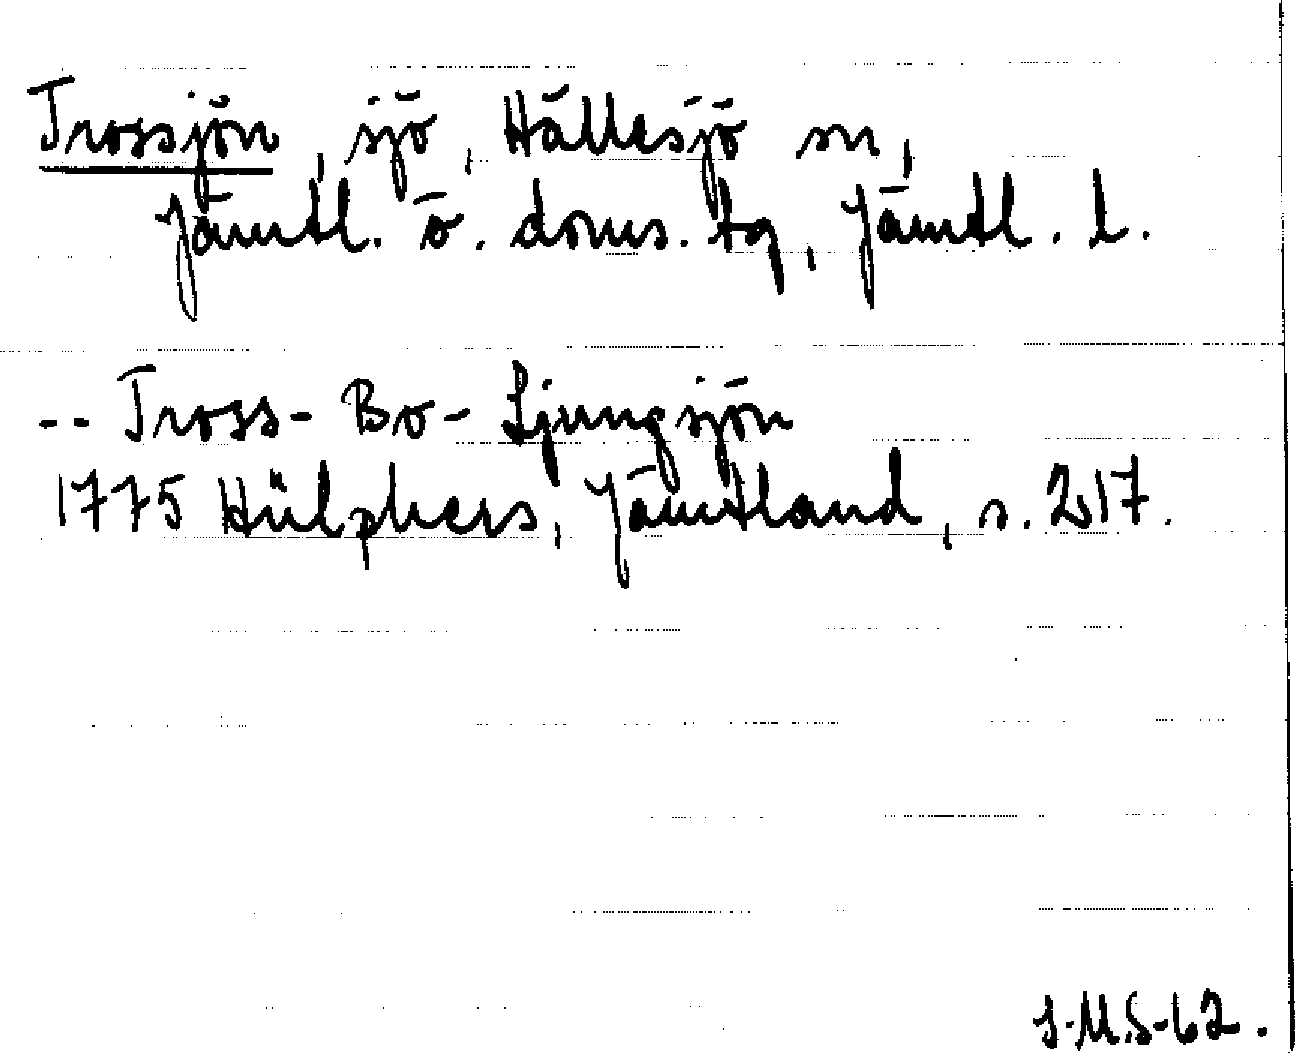 Trossjön, sjö, Hällesjö sn,
Jämtl. ö. doms. tg, Jämtl. l.
-- Tross- Bo- Ljungsjön
1775 Hülphers, Jämtland, s. 217.
I-M.S-62.